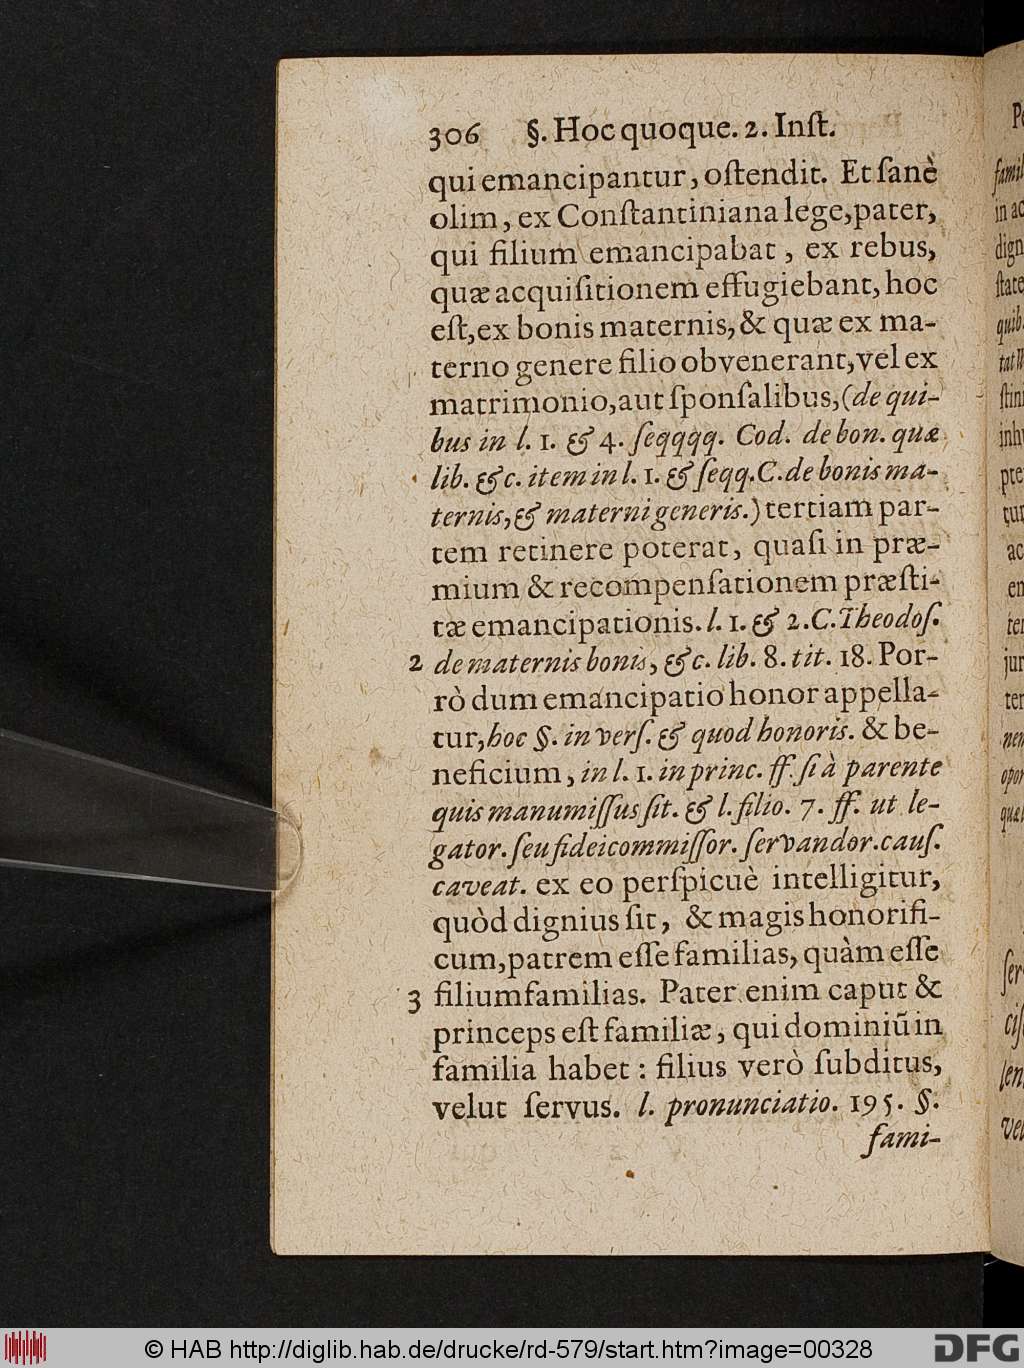 306 §. Hoc quoque. 2. Inſt.
qui emancipantur, oſtendit. Et ſanè
olim, ex Conſtantiniana lege, pater,
qui filium emancipabat, ex rebus,
quæ acquiſitionem effugiebant, hoc
eſt, ex bonis maternis, & quæ ex ma-
terno genere filio obvenerant, vel ex
matrimonio, aut ſponſalibus, (de qui-
bus in l. 1. & 4. ſeqqqq. Cod. de bon. quæ
lib. &c. item in l. 1. & ſeqq. C. de bonis ma-
ternis, & materni generis.) tertiam par-
tem retinere poterat, quaſi in præ-
mium & recompenſationem præſti-
tæ emancipationis. l. 1. & 2. C. Theodoſ.
2 de maternis bonis, &c. lib. 8. tit. 18. Por-
rò dum emancipatio honor appella-
tur, hoc §. in verſ. & quod honoris. & be-
neficium, in l. 1. in princ. ff. ſi à parente
quis manumiſſus ſit. & l. filio. 7. ff. ut le-
gator. ſeu fideicommiſſor. ſervandor. cauſ.
caveat. ex eo perſpicuè intelligitur,
quòd dignius ſit, & magis honorifi-
cum, patrem eſſe familias, quàm eſſe
3 filiumfamilias. Pater enim caput &
princeps eſt familiæ, qui dominiũ in
familia habet : filius verò ſubditus,
velut ſervus. l. pronunciatio. 195. §.
fami-
© HAB http://diglib.hab.de/drucke/rd-579/start.htm?image=00328
DFG